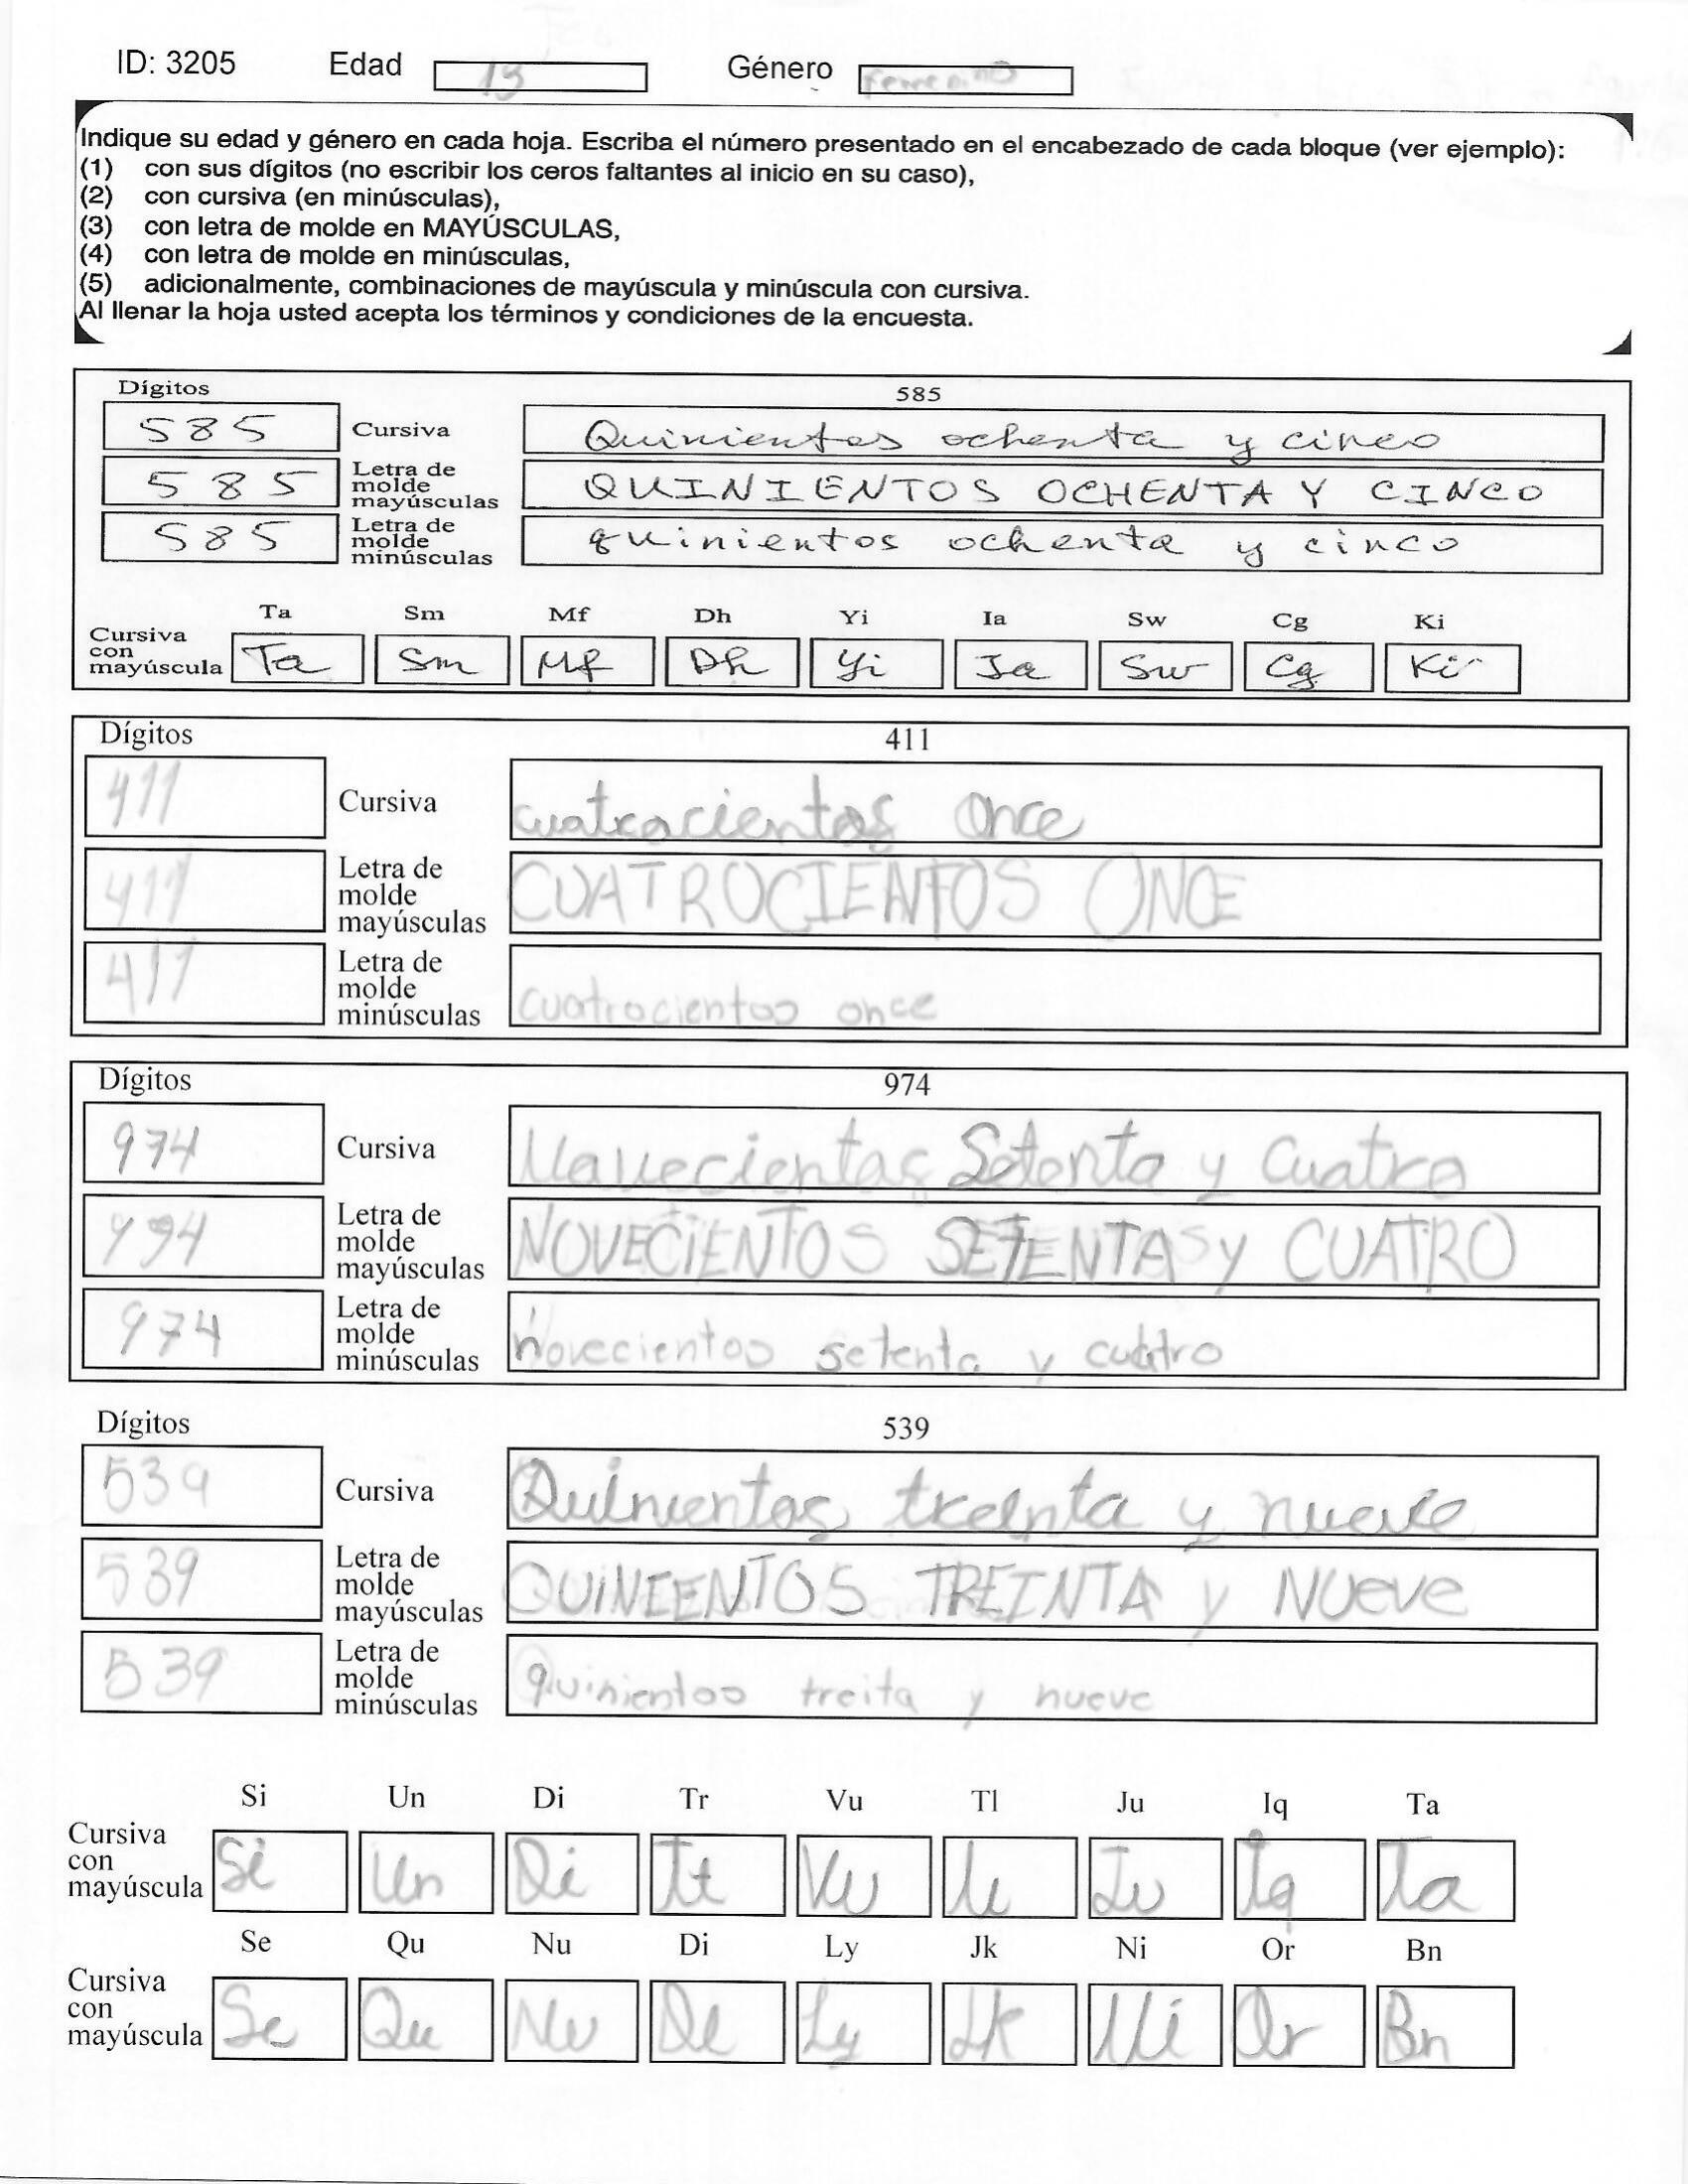 ID: 3205 Edad 13 Género femenino
Indique su edad y género en cada hoja. Escriba el número presentado en el encabezado de cada bloque (ver ejemplo):
(1) con sus dígitos (no escribir los ceros faltantes al inicio en su caso),
(2) con cursiva (en minúsculas),
(3) con letra de molde en MAYÚSCULAS,
(4) con letra de molde en minúsculas,
(5) adicionalmente, combinaciones de mayúscula y minúscula con cursiva.
Al llenar la hoja usted acepta los términos y condiciones de la encuesta.
Dígitos 585
585 Cursiva Quinientos ochenta y cinco
585 Letra de molde mayúsculas QUINIENTOS OCHENTA Y CINCO
585 Letra de molde minúsculas quinientos ochenta y cinco
Ta Sm Mf Dh Yi Ia Sw Cg Ki
Cursiva con mayúscula Ta Sm Mf Dh Yi Ia Sw Cg Ki
Dígitos 411
411 Cursiva cuatrocientos Once
411 Letra de molde mayúsculas CUATROCIENTOS ONCE
411 Letra de molde minúsculas cuatrocientos once
Dígitos 974
974 Cursiva Novecientos Setenta y Cuatro
974 Letra de molde mayúsculas NOVECiENTOS SETENTA y CUATRO
974 Letra de molde minúsculas novecientos setenta y cuatro
Dígitos 539
539 Cursiva Quinientos treinta y nueve
539 Letra de molde mayúsculas QUiNIENTOS TREINTA y NUeve
539 Letra de molde minúsculas quinientos treita y nueve
Si Un Di Tr Vu Tl Ju Iq Ta
Cursiva con mayúscula Si Un Di Tr Vu Tl Ju Iq Ta
Se Qu Nu Di Ly Jk Ni Or Bn
Cursiva con mayúscula Se Qu Nu Di Ly Jk Ni Or Bn